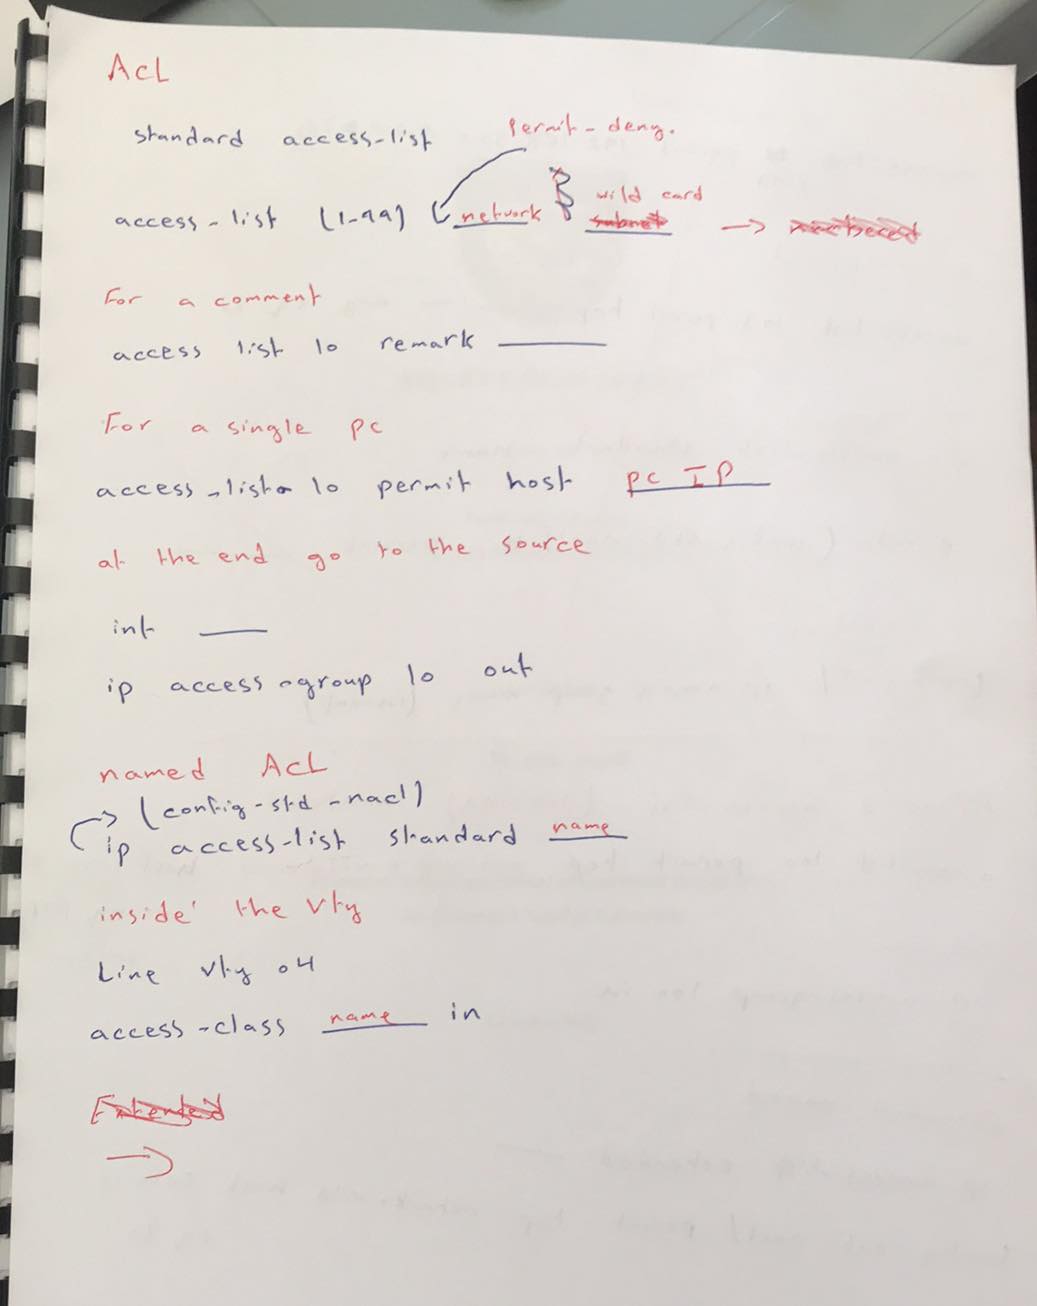 ACL
standard access-list permit-deny.
access-list (1-99) network wild card subnet →
For a comment
access list 10 remark
For a single pc
access-list 10 permit host pc IP
at the end go to the source
int
ip access-group 10 out
named ACL
(config-std-nacl)
ip access-list standard name
inside the vty
Line vty 04
access-class name in
Extended
→